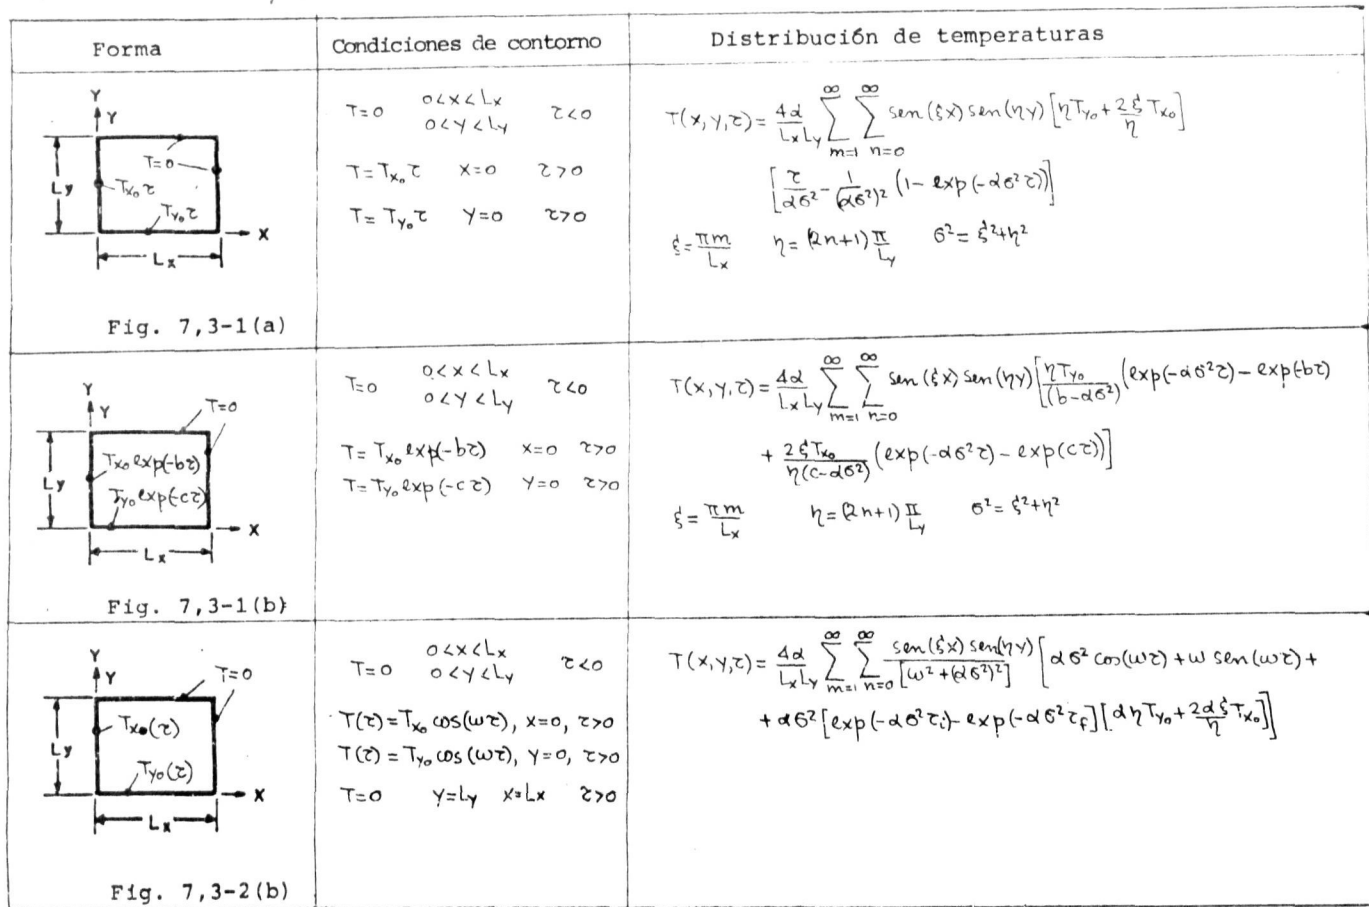 Forma
Condiciones de contorno
Distribución de temperaturas
Y
Y
T=0
Ly
Tx₀τ
Ty₀τ
X
Lx
Fig. 7,3-1(a)
T=0 0<x<Lx τ<0
0<y<Ly
T=Tx₀τ x=0 τ>0
T=Ty₀τ y=0 τ>0
T(x,y,τ)= 4α/(LxLy) ∑_{m=1}^∞ ∑_{n=0}^∞ sen(ξx) sen(ηy) [ηTy₀ + 2ξ/η Tx₀]
[τ/(ασ²) - 1/(ασ²)² (1-exp(-ασ²τ))]
ξ=πm/Lx η=(2n+1)π/Ly σ²=ξ²+η²
Y
Y
T=0
Ly
Tx₀ exp(-bτ)
Ty₀ exp(-cτ)
X
Lx
Fig. 7,3-1(b)
T=0 0<x<Lx τ<0
0<y<Ly
T=Tx₀ exp(-bτ) x=0 τ>0
T=Ty₀ exp(-cτ) y=0 τ>0
T(x,y,τ)= 4α/(LxLy) ∑_{m=1}^∞ ∑_{n=0}^∞ sen(ξx) sen(ηy) [ηTy₀/(b-ασ²) (exp(-ασ²τ) - exp(-bτ)
+ 2ξTx₀/(η(c-ασ²)) (exp(-ασ²τ) - exp(cτ))]
ξ=πm/Lx η=(2n+1)π/Ly σ²=ξ²+η²
Y
Y
T=0
Ly
Tx₀(τ)
Ty₀(τ)
X
Lx
Fig. 7,3-2(b)
T=0 0<x<Lx τ<0
0<y<Ly
T(τ)=Tx₀ cos(ωτ), x=0, τ>0
T(τ)=Ty₀ cos(ωτ), y=0, τ>0
T=0 y=Ly x=Lx τ>0
T(x,y,τ)= 4α/(LxLy) ∑_{m=1}^∞ ∑_{n=0}^∞ sen(ξx) sen(ηy)/[ω²+(ασ²)²] [ασ² cos(ωτ) + ω sen(ωτ) +
+ ασ² [exp(-ασ²τi) - exp(-ασ²τf)] [αηTy₀ + 2αξ/η Tx₀]]